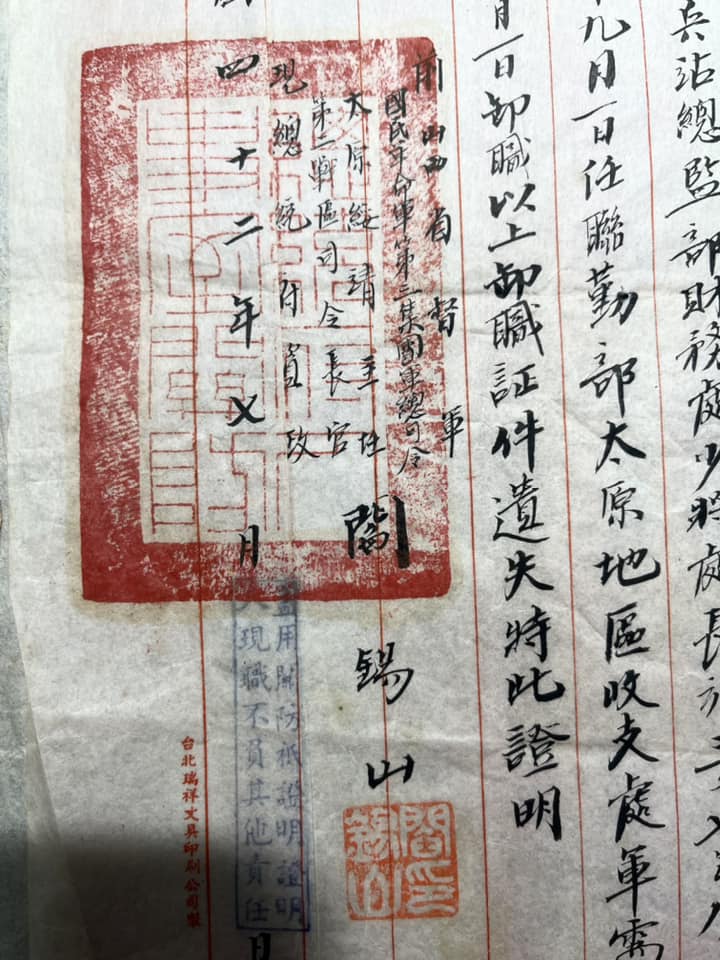 兵站總監部財務處少將處長於三
九月一日任聯勤部太原地區收支處軍需
月一日卸職以上卸職証件遺失特此證明
前山西省督軍
國民革命軍第三集團軍總司令
太原綏靖主任
第二戰區司令長官
現總統府資政
閻錫山
閻錫山印
四十二年 月 日
蓋用關防祇證明證明
人現職不負其他責任
台北瑞祥文具印刷公司製